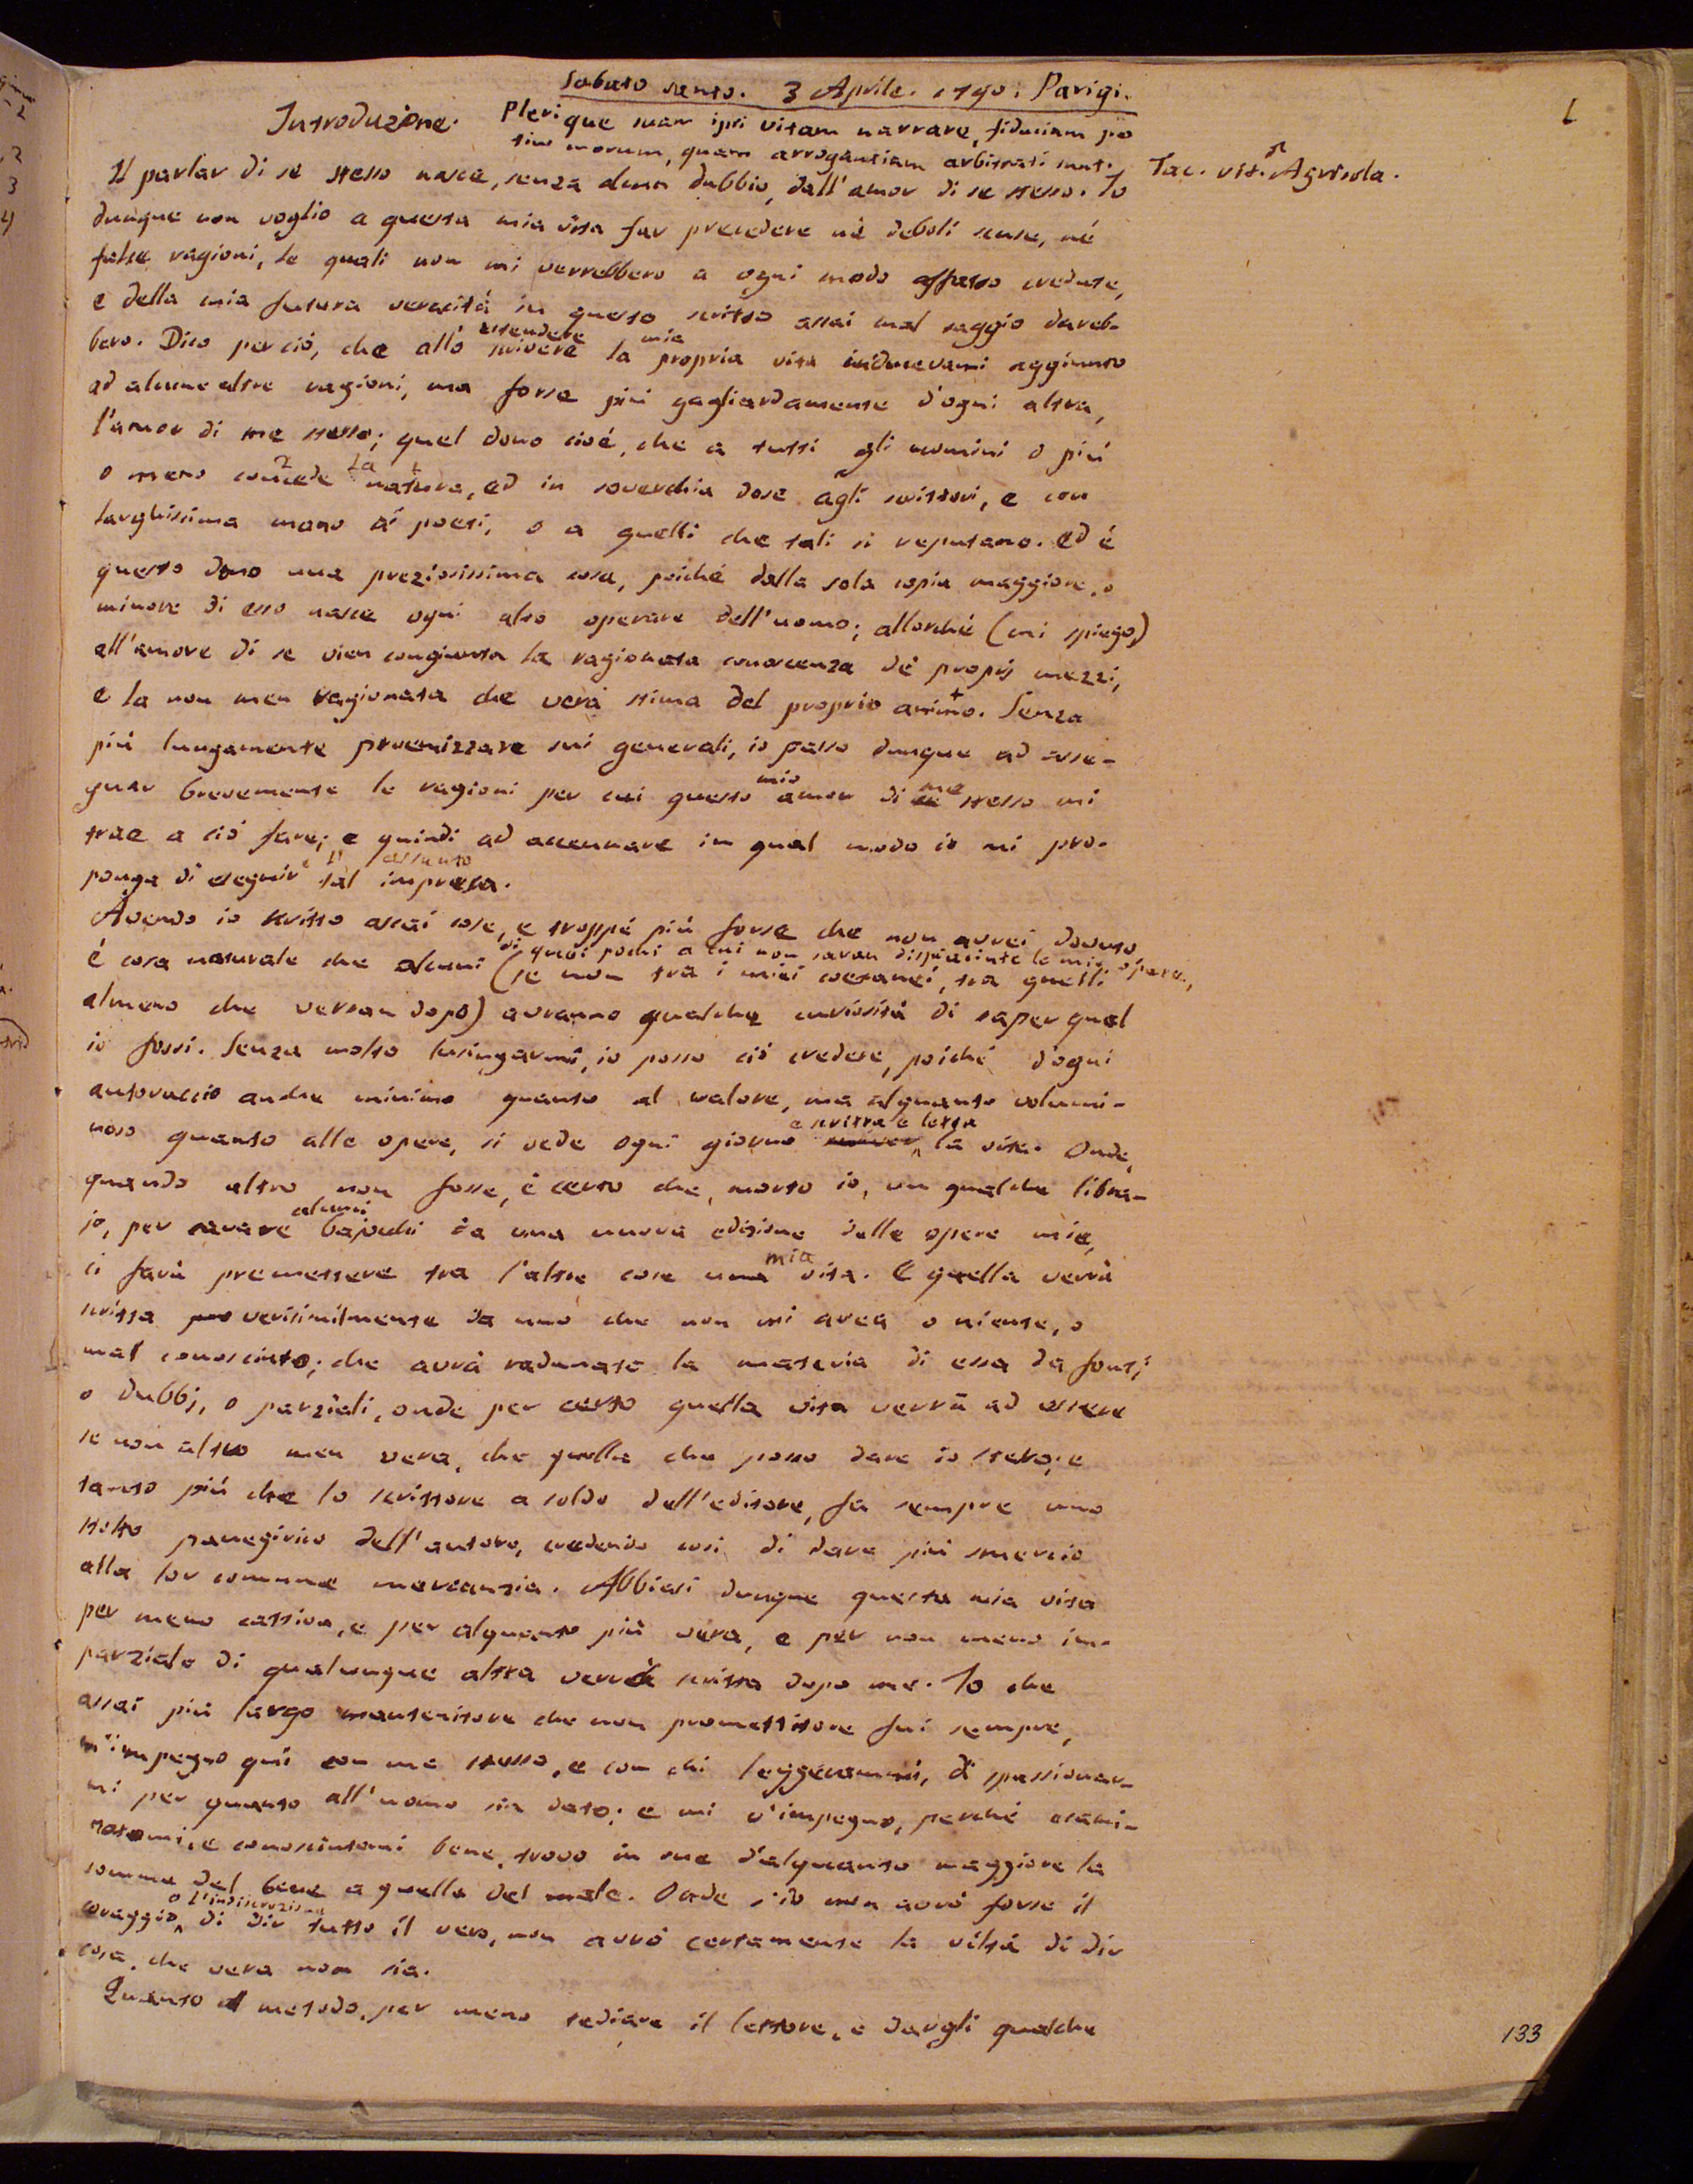 1
Sabato santo. 3 Aprile. 1790. Parigi.
Introduzione.
Plerique suam ipsi vitam narrare, fiduciam po
tius morum, quam arrogantiam arbitrati sunt.
Tac. vit. Agricola.
Il parlar di se stesso nasce, senza alcun dubbio, dall'amor di se stesso. Io
dunque non voglio a questa mia vita far precedere nè deboli scuse, né
false ragioni, le quali non mi verrebbero a ogni modo affatto credute,
e della mia futura veracità in questo scritto assai mal saggio dareb-
bero. Dico perciò, che allo
stendere
scrivere la
mia
propria vita inducevami aggiunto
ad alcune altre ragioni, ma forse più gagliardamente d'ogni altra,
l'amor di me stesso; quel dono cioé, che a tutti gli uomini o più
o meno concede la natura, ed in soverchia dose agli scrittori, e con
larghissima mano ai poeti, o a quelli che tali si reputano. Ed é
questo dono una preziosissima cosa, poiché dalla sola copia maggiore, o
minore di esso nasce ogni alto operare dell'uomo; allorché (mi spiego)
all'amore di se vien congiunta la ragionata conoscenza dei propri mezzi,
e la non men ragionata che vera stima del proprio animo. Senza
più lungamente proemizzare sui generali, io passo dunque ad asse-
gnar brevemente le ragioni per cui questo
mio
amor di
me
se stesso mi
trae a ciò fare; e quindi ad accennare in qual modo io mi pro-
ponga di eseguir
assunto
tal impresa.
Avendo io scritto assai cose, e troppe più forse che non avrei dovuto,
è cosa naturale che alcuni
di quei pochi a cui non saran dispiaciute le mie opere,
(se non tra i miei coetanei, tra quelli
almeno che verran dopo) avranno qualche curiosità di saper qual
io fossi. Senza molto lusingarmi, io posso ciò credere, poiché d'ogni
autoruccio anche minimo quanto al valore, ma alquanto volumi-
noso quanto alle opere, si vede ogni giorno
e scritta e letta
la vita. Onde,
quando altro non fosse, è certo che, morto io, un qualche libra-
jo, per cavare
alcuni
bajocchi da una nuova edizione delle opere mie,
ci farà premettere tra l'altre cose una
mia
vita. E quella verrà
scritta verisimilmente da uno che non mi avea o niente, o
mal conosciuto; che avrà radunato la materia di essa da fonti
o dubbj, o parziali, onde per certo quella vita verrà ad essere
se non altro men vera, che quella che posso dare io stesso; e
tanto più che lo scrittore a soldo dell'editore, fa sempre uno
stolto panegirico dell'autore, credendo così di dare più smercio
alla lor comune mercanzia. Abbiasi dunque questa mia vita
per meno cattiva, e per alquanto più vera, e per non meno im-
parziale di qualunque altra verrà scritta dopo me. Io che
assai più largo mantenitore che non promettitore fui sempre,
m'impegno qui con me stesso, e con chi leggerammi, di spassionar-
mi per quanto all'uomo sia dato; e mi v'impegno, perché esami-
natomi, e conosciutomi bene, trovo in me d'alquanto maggiore la
somma del bene a quella del male. Onde s'io non avrò forse il
coraggio
o l'indiscrezione
di dir tutto il vero, non avrò certamente la viltà di dir
cosa, che vera non sia.
Quanto al metodo, per meno tediare il lettore, e dargli qualche
133